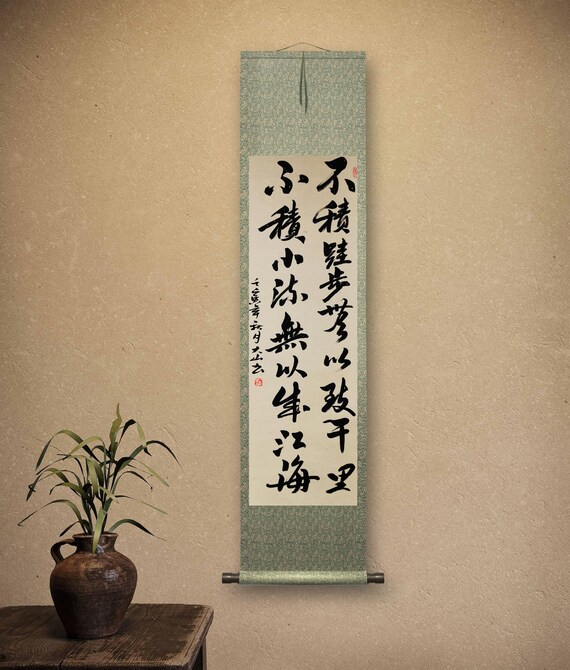 不積跬步無以致千里
不積小流無以成江海
壬寅年秋月大山書